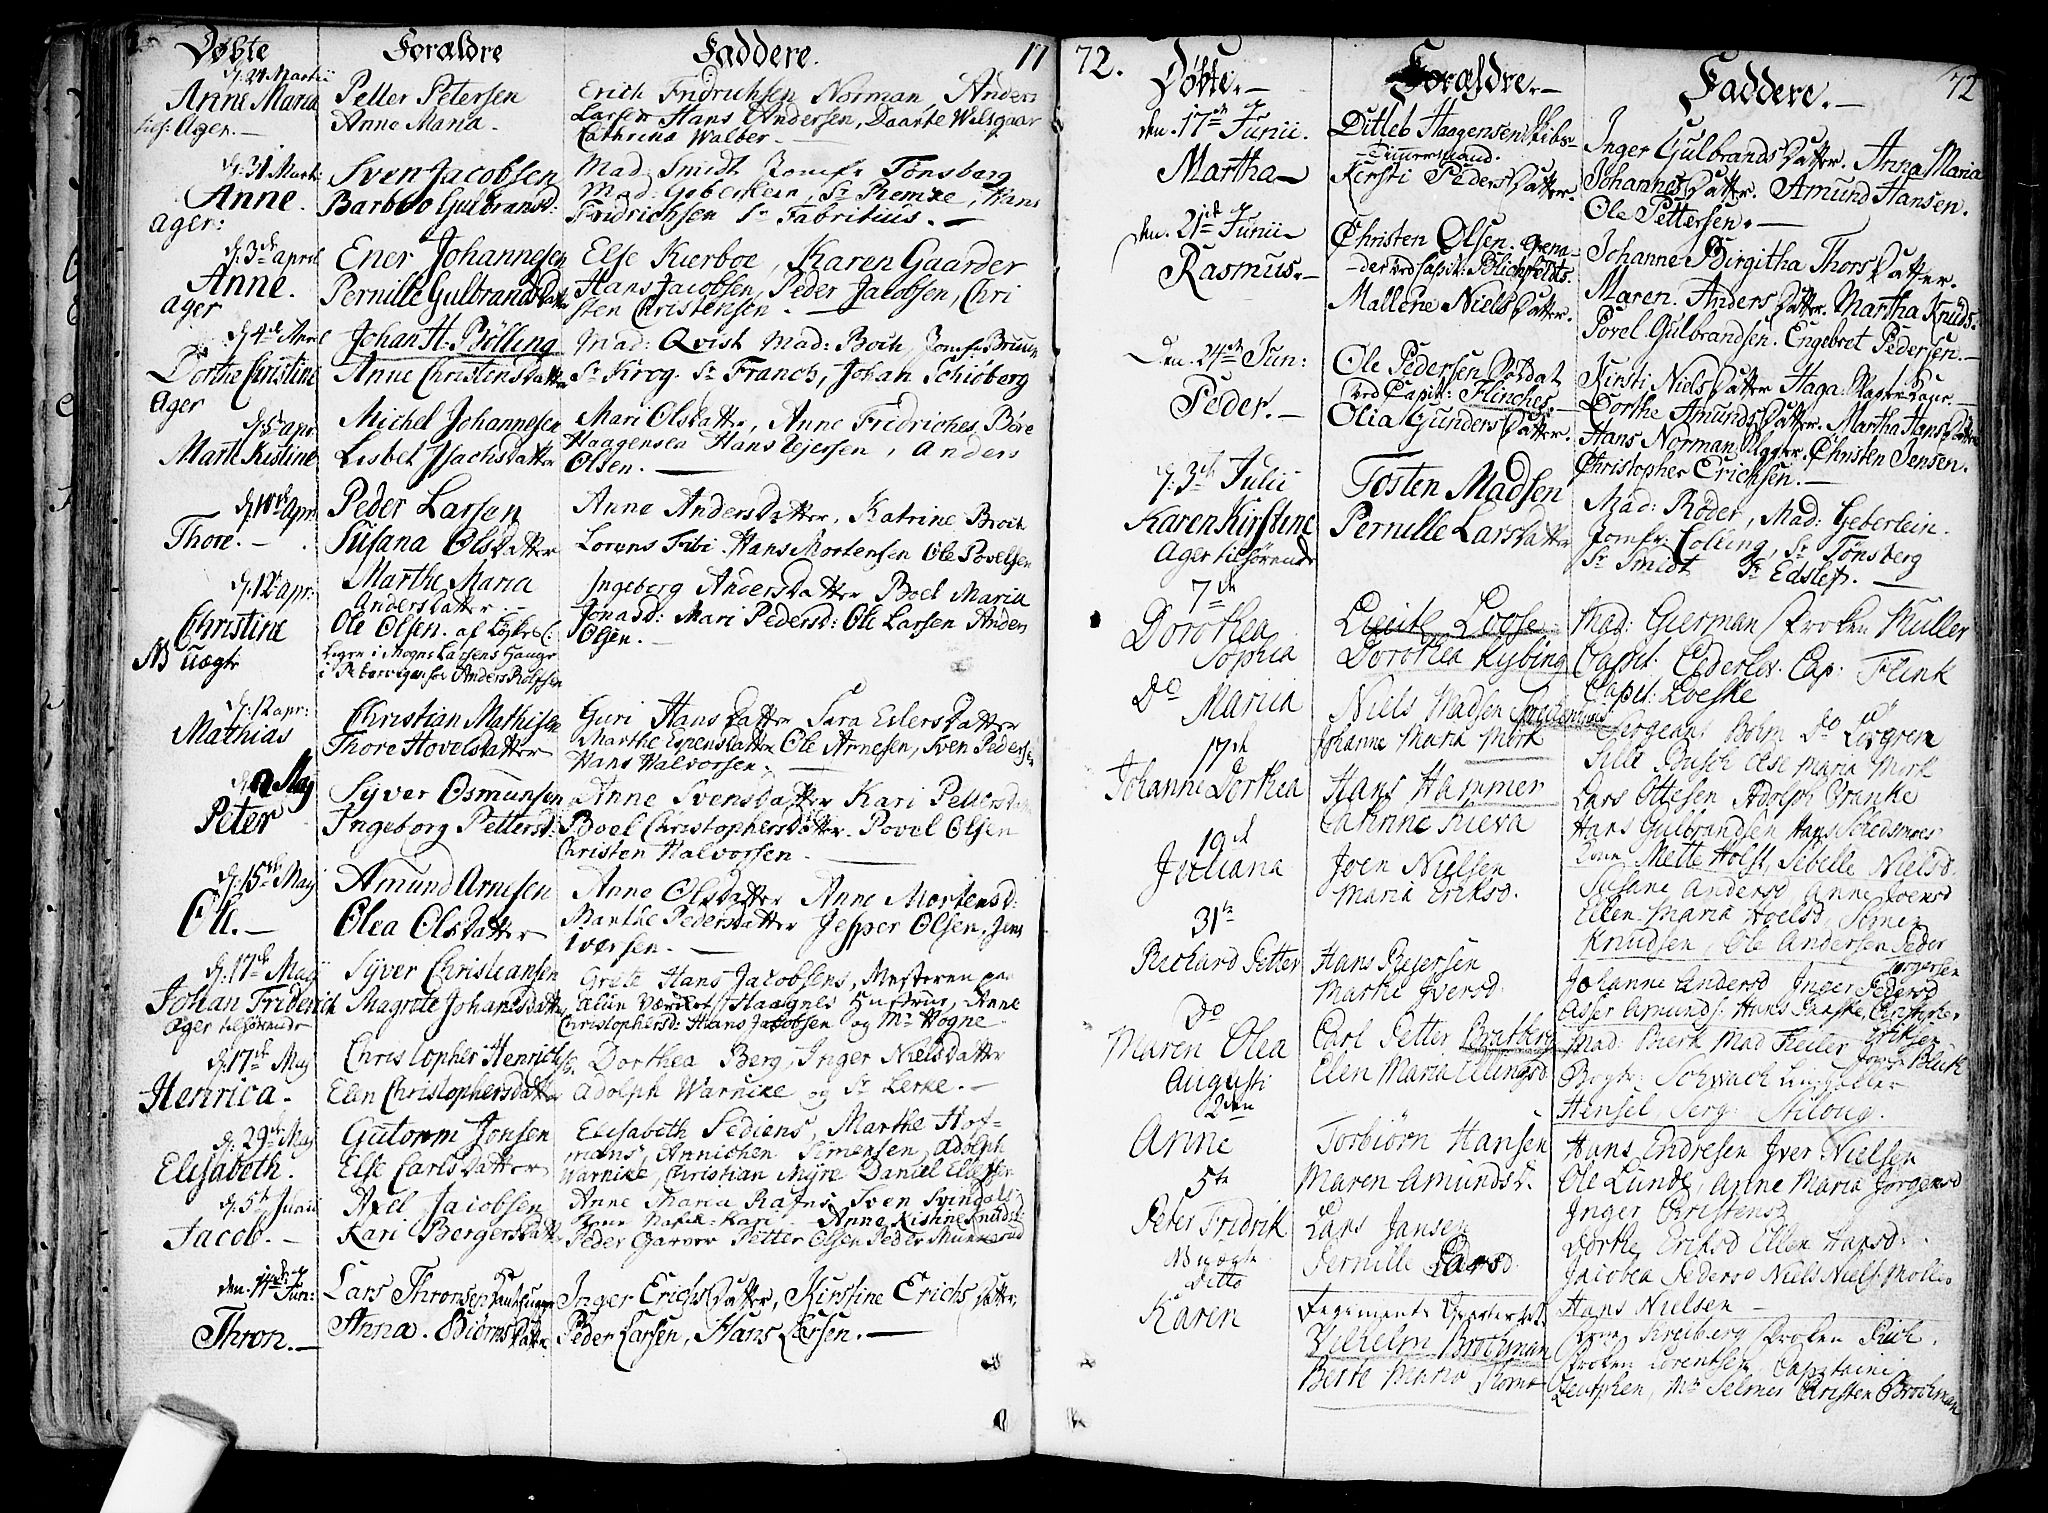 Døbte
Forældre
Faddere.
17
d. 24 Martii
Anne Maria
Ager.
Petter Petersen
Anne Maria.
Erich Fridrichsen Norman, Anders
Larsen Hans Andersen, Daarte Wilsgaar
Cathrina Walber
d. 31 Marti
Anne.
Ager:
Sven Jacobsen
Barbro Gulbransd:
Mad. Smidt Jomfr Tønsberg
Mad: Geberlein, Sr Remke, Hans
Fridrichsen Sr Fabritius.
d. 3de april
Anne.
ager
Ener Johannesen
Pernille Gulbrandsdatter
Else Kierboe, Karen Gaarder
Hans Jacobsen, Peder Jacobsen, Chri
sten Christensen.
d. 4de Apr
Dorthe Christine
Ager
Johan H. Bölling
Anne Christensdatter
Mad: Qvist Mad: Boch, Jomf: Bruun
Sr Krog. Sr Franch, Johan Schiøberg
d. 5te apr
Marte Kistine
Michel Johannesen
Lisbet Isachsdatter
Mari Olsdatter, Anne Fridriches, Böre
Haagensen Hans Ejersen, Anders
Olsen.
d. 10de Apr
Thore.
Peder Larsen
Susana Olsdatter
Anne Andersdatter, Katrine Broch
Lorens Fibi. Hans Mortensen Ole Povelsen
d. 12te apr:
Christine
NB uægte
Marthe Maria
Andersdatter
Ole Olsen. af
i Mogns Larsens Hauge
Anders Rolfsen
Ingeberg Andersdatter Boel Maria
Jonasd: Mari Pedersd: Ole Larsen Anders
Olsen.
d. 12 apr:
Mathias
Christian Mathisen
Thore Hovelsdatter
Guri Hansdatter Sara Edersdatter
Marthe Espensdatter Ole Arnesen, Sven Peders
Hans Halvorsen.
d. 2 Maj
Peter
Syver Osmunsen
Ingeborg Pettersd:
Anne Svensdatter Kari Petters
Boel Christophersdatter. Povel Olsen
Christen Halvorsen.
d. 15de Maj
Ole.
Amund Arnesen
Olea Olsdatter
Anne Olsdatter Anne Mortensd:
Marthe Pedersdatter Jesper Olsen. Jens
Iversen.
d. 17de Maj
Johan Friderich
Ager tilhörende
Syver Christiansen
Magrete Johansdatter
Grete Hans Jacobsens, Mesteren paa
Alun Værket Haagnes Hustrue, Anne
Christophersd: Hans Jacobsen og Mr Hogne
d. 17de Maj
Henrica.
Christopher Henrichs.
Elen Christophersdatter
Dorthea Berg, Inger Nielsdatter
Adolph Warnike og Sr Lerke.
d. 29de Maj
Elisabeth.
Gutorm Jonsen
Else Carlsdatter
Elisabeth Sediens, Marthe Hof-
mans, Annichen Simensen, Adolph
Warnike, Christian Myre Daniel Ellefsen
d. 5te Junii
Jacob.
Axel Jacobsen
Kari Bergersdatter
Anne Maria Rafns Sven Svendals
Kari Anne Kistine Knudsd:
Peder Garver Petter Olsen Peder Munkerud
den. 14de Jun:
Thron.
Lars Thronsen
Anna. Biörnsdatter
Inger Erichsdatter, Kirstine Erichsdatter,
Peder Larsen, Hans Larsen.
72.
Døbte.
Forældre.
Faddere.
72
den. 17de Junii.
Martha
Ditleb Haagensen Skibs-
Timmermand.
Kirsti Pedersdatter.
Inger Gulbrandsdatter. Anna Maria
Johannesdatter. Amund Hansen.
Ole Pettersen.
den. 21de Junii
Rasmus.
Christen Olsen. Grena-
der ved Capit: Blichfeldts.
Mallene Nielsdatter.
Johanne Birgitha Thorsdatter.
Maren. Andersdatter. Martha Knuds.
Povel Gulbrandsen. Engebret Pedersen.
Den. 24de Jun:
Peder.
Ole Pedersen Soldat
ved Capit: Flinches
Olia Gundersdatter.
Kirsti Nielsdatter Haga:
Dorthe Amundsdatter. Martha Hansdatter
Hans Norman. Christen Jensen.
Christopher Erichsen.
d. 3de Julii
Karen Kirstine
Ager tilhørende
Tosten Madsen
Pernille Larsdatter
Mad: Röder, Mad: Geberlein.
Jomfr: Colling, Sr Tönsberg
Sr Smidt Sr Edslef.
7de
Dorothea
Sophia
Lieut. Loose
Dorothea Nybing
Mad: Gierman Frøken Müller
Capit: Cederlov. Cap: Flink
Capit: Loeske
Do
Maria
Niels Madsen
Johanne Maria Mörk
Sergeant Bolm Do Lorgren
Sille Busch Else Maria Mörk
Lars Ottesen Adolph Franke
17de
Johanne Dorthea
Hans Hammer
Catrine Kieva
Hans Gulbrandsen Hans Schedsmoes
Kone Mette Holst, Sebelle Nielsd
19de
Juliana
Joen Nielsen
Maria Eriksd.
Susane Andersd Anne Joensd
Ellen Maria Hoelsd, Simen
Knudsen, Ole Andersen Peder
Jørgersen
31te
Richard Petter
Hans Pedersen
Marthe Iversd
Johanne Andersd Inger Pedersd
Asser Amunds: Hans Ganske, Christopher
Eriksen
Do
Maren Olea
Carl Petter Bratberg
Elen Maria Ellingsd
Mad: Bierk Mad Feiler Jomfr Blick
Bogtr: Schwach
Hensel Serg:
Augusti
2den
Anne
Torbiörn Hansen
Maren Amundsd.
Hans Endresen Iver Nielsen
Ole Lunde, Anne Maria Jörgensd
Inger Christensd
5te
Peter Fridrik
NB uægte
Lars Jansen
Pernille Larsd
Dorthe Eriksd Ellen Hansd:
Jacobea Pedersd Niels Niels: Moller
Hans Nielsen
Ditto
Karen
Regiments Qvarterst.
Vilhelm Brochman
Berte Maria
Kreiberg Frøken Pich.
Frøken Lorentsen Captaini
Zeutphen, Mr Selmer Christen Brochman